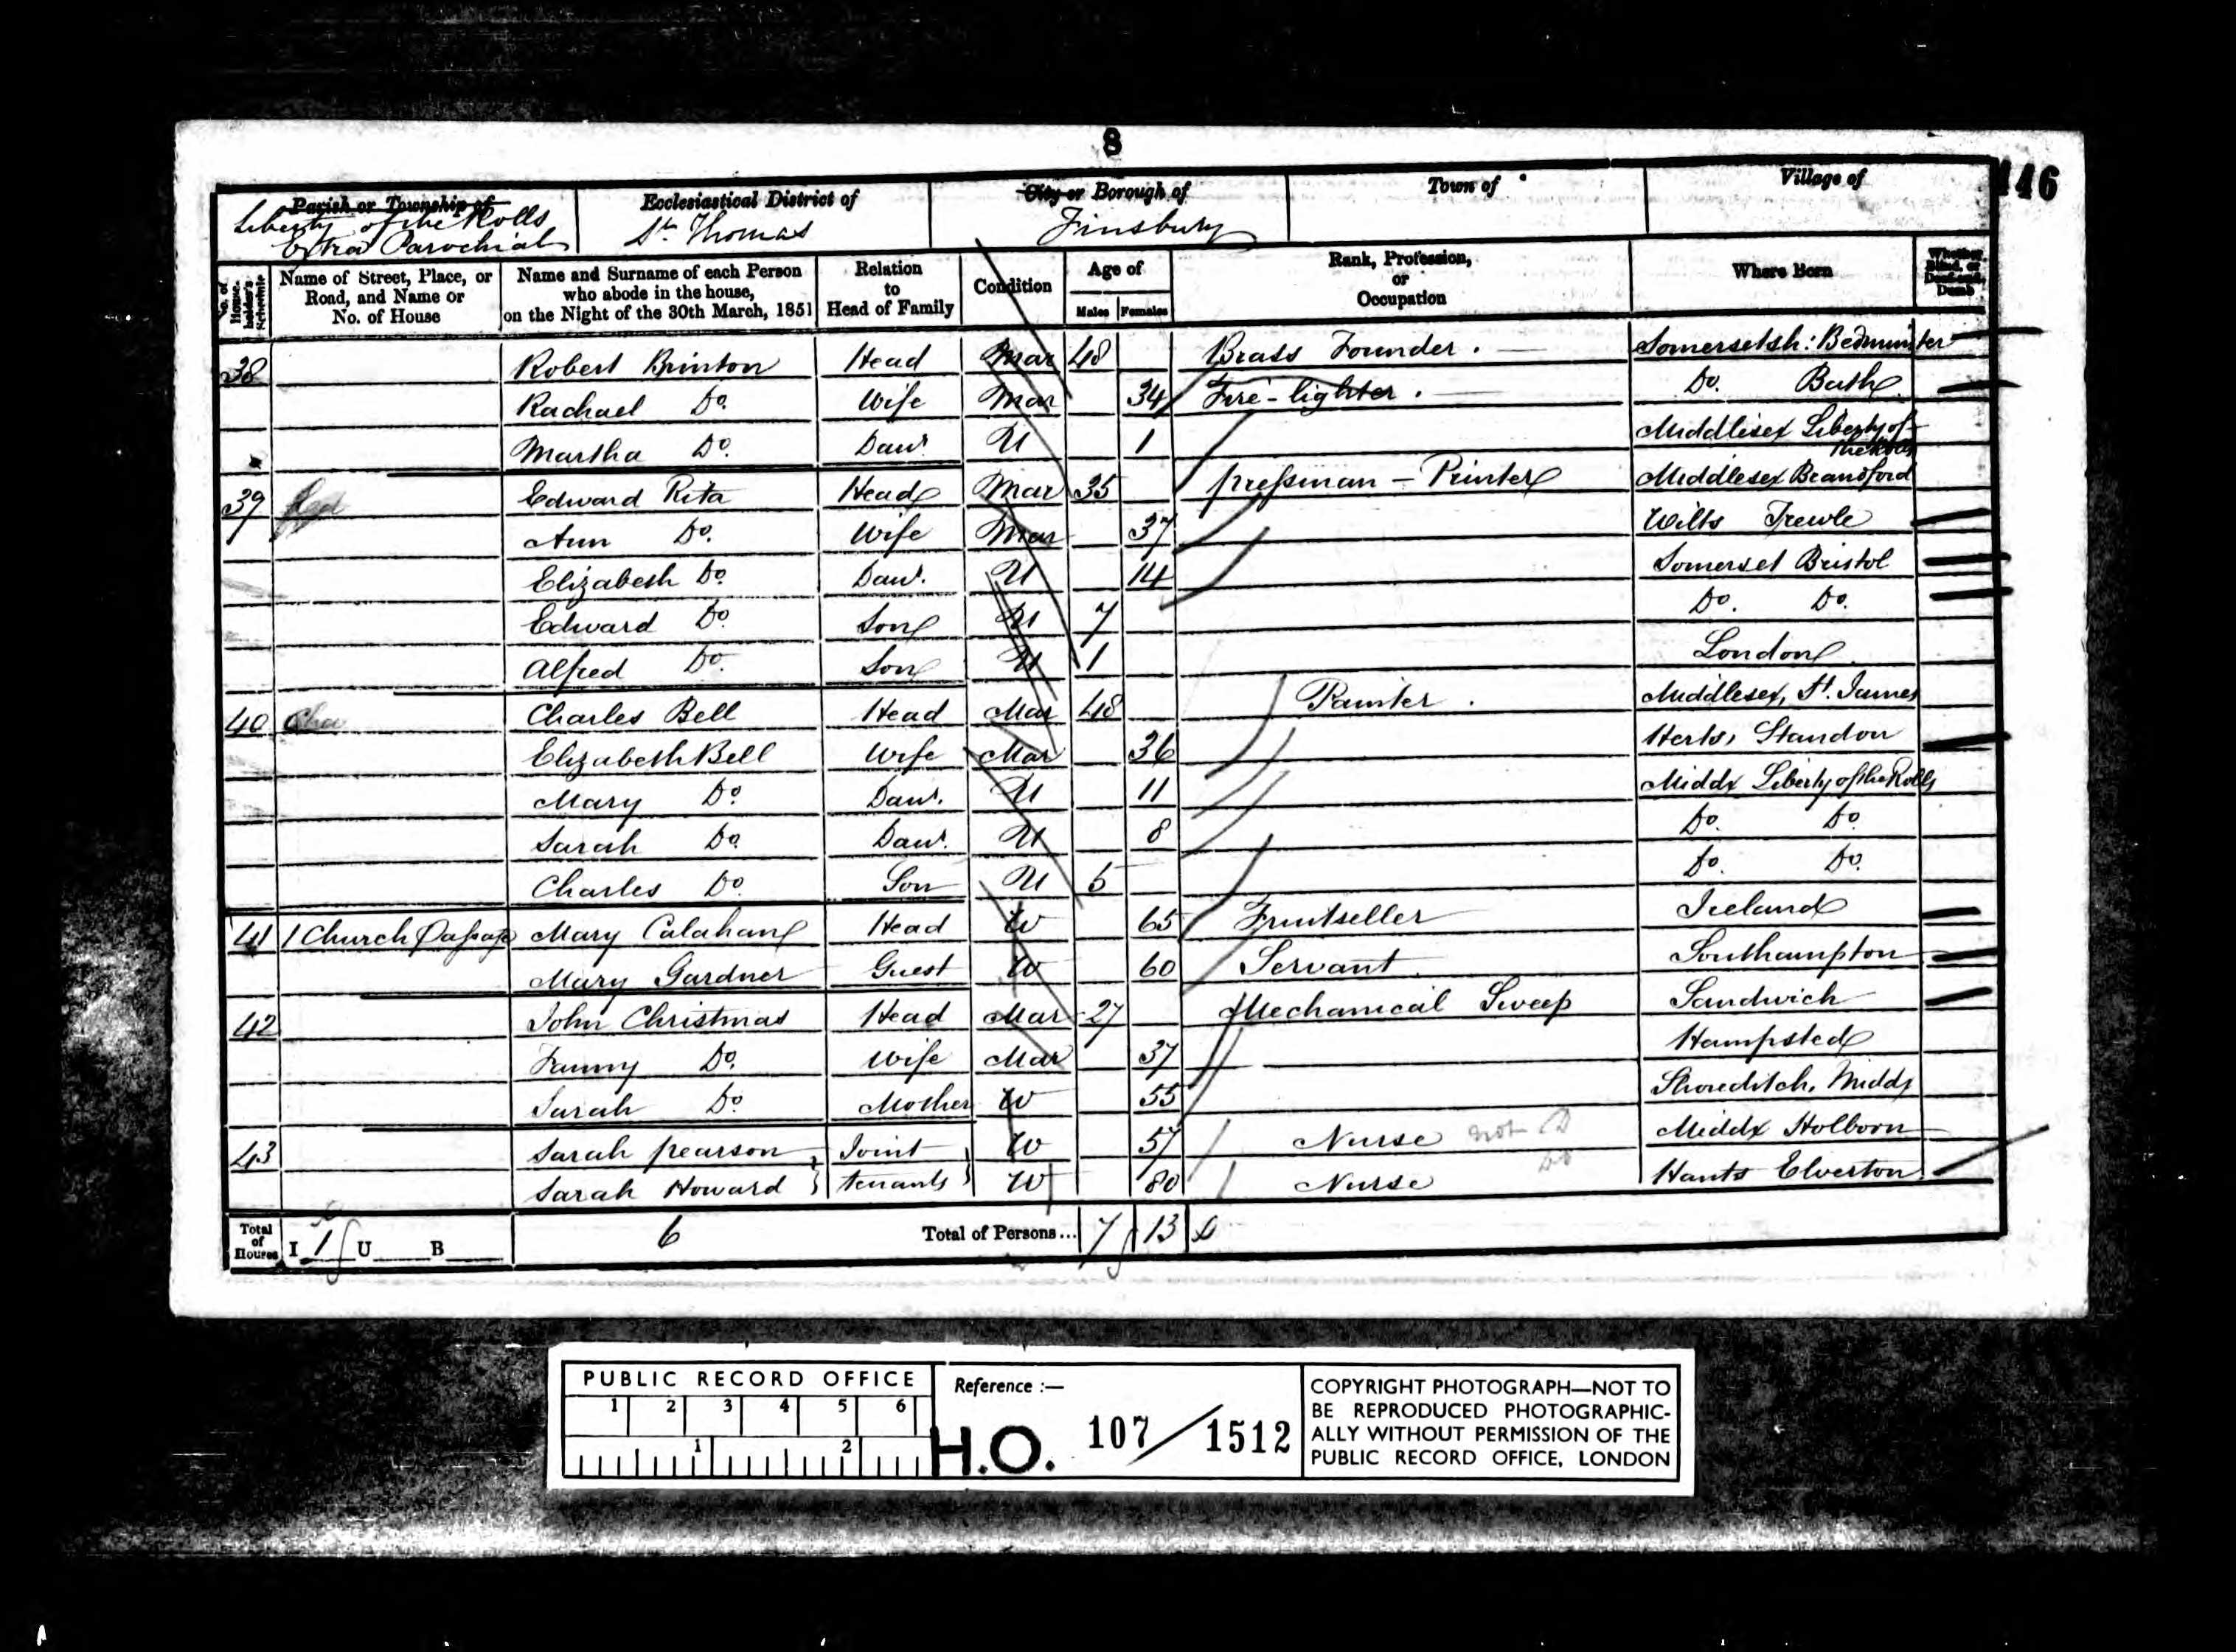 8
446
Parish or Township of
Liberty of the Rolls
Extra Parochial
Ecclesiastical District of
St. Thomas
City or Borough of
Finsbury
Town of
Village of
No. of House-holder's Schedule
Name of Street, Place, or Road, and Name or No. of House
Name and Surname of each Person who abode in the house, on the Night of the 30th March, 1851
Relation to Head of Family
Condition
Age of
Males Females
Rank, Profession, or Occupation
Where Born
Whether Blind, or Deaf-and-Dumb
38 Robert Brinton Head Mar 48 Brass Founder. Somersetsh: Bedminster
Rachael Do. Wife Mar 34 Fire-lighter. Do. Bath
Martha Do. Daur. U 1 Middlesex Liberty of the Rolls
39 Edward Rita Head Mar 35 pressman - Printer Middlesex
Ann Do. Wife Mar 37 Wilts
Elizabeth Do. Daur. U 14 Somerset Bristol
Edward Do. Son U 7 Do. Do.
Alfred Do. Son U 1 London
40 Cha Charles Bell Head Mar 48 Painter. Middlesex, St. James
Elizabeth Bell Wife Mar 36 Herts, Standon
Mary Do. Daur. U 11 Middx Liberty of the Rolls
Sarah Do. Daur. U 8 Do. Do.
Charles Do. Son U 5 Do. Do.
41 1 Church Passage Mary Calahan Head W 65 Fruitseller Ireland
Mary Gardner Guest W 60 Servant Southampton
42 John Christmas Head Mar 27 Mechanical Sweep Sandwich
Fanny Do. Wife Mar 37 Hampsted
Sarah Do. Mother W 55 Shoreditch, Middx
43 Sarah pearson Joint W 57 Nurse not D Middx Holborn
Sarah Howard tenants W 80 Nurse Do Hants Elverton
Total of Houses I 1 U B 6 Total of Persons... 7 13
PUBLIC RECORD OFFICE
1 2 3 4 5 6
1 2
Reference :—
H.O. 107/1512
COPYRIGHT PHOTOGRAPH—NOT TO
BE REPRODUCED PHOTOGRAPHIC-
ALLY WITHOUT PERMISSION OF THE
PUBLIC RECORD OFFICE, LONDON